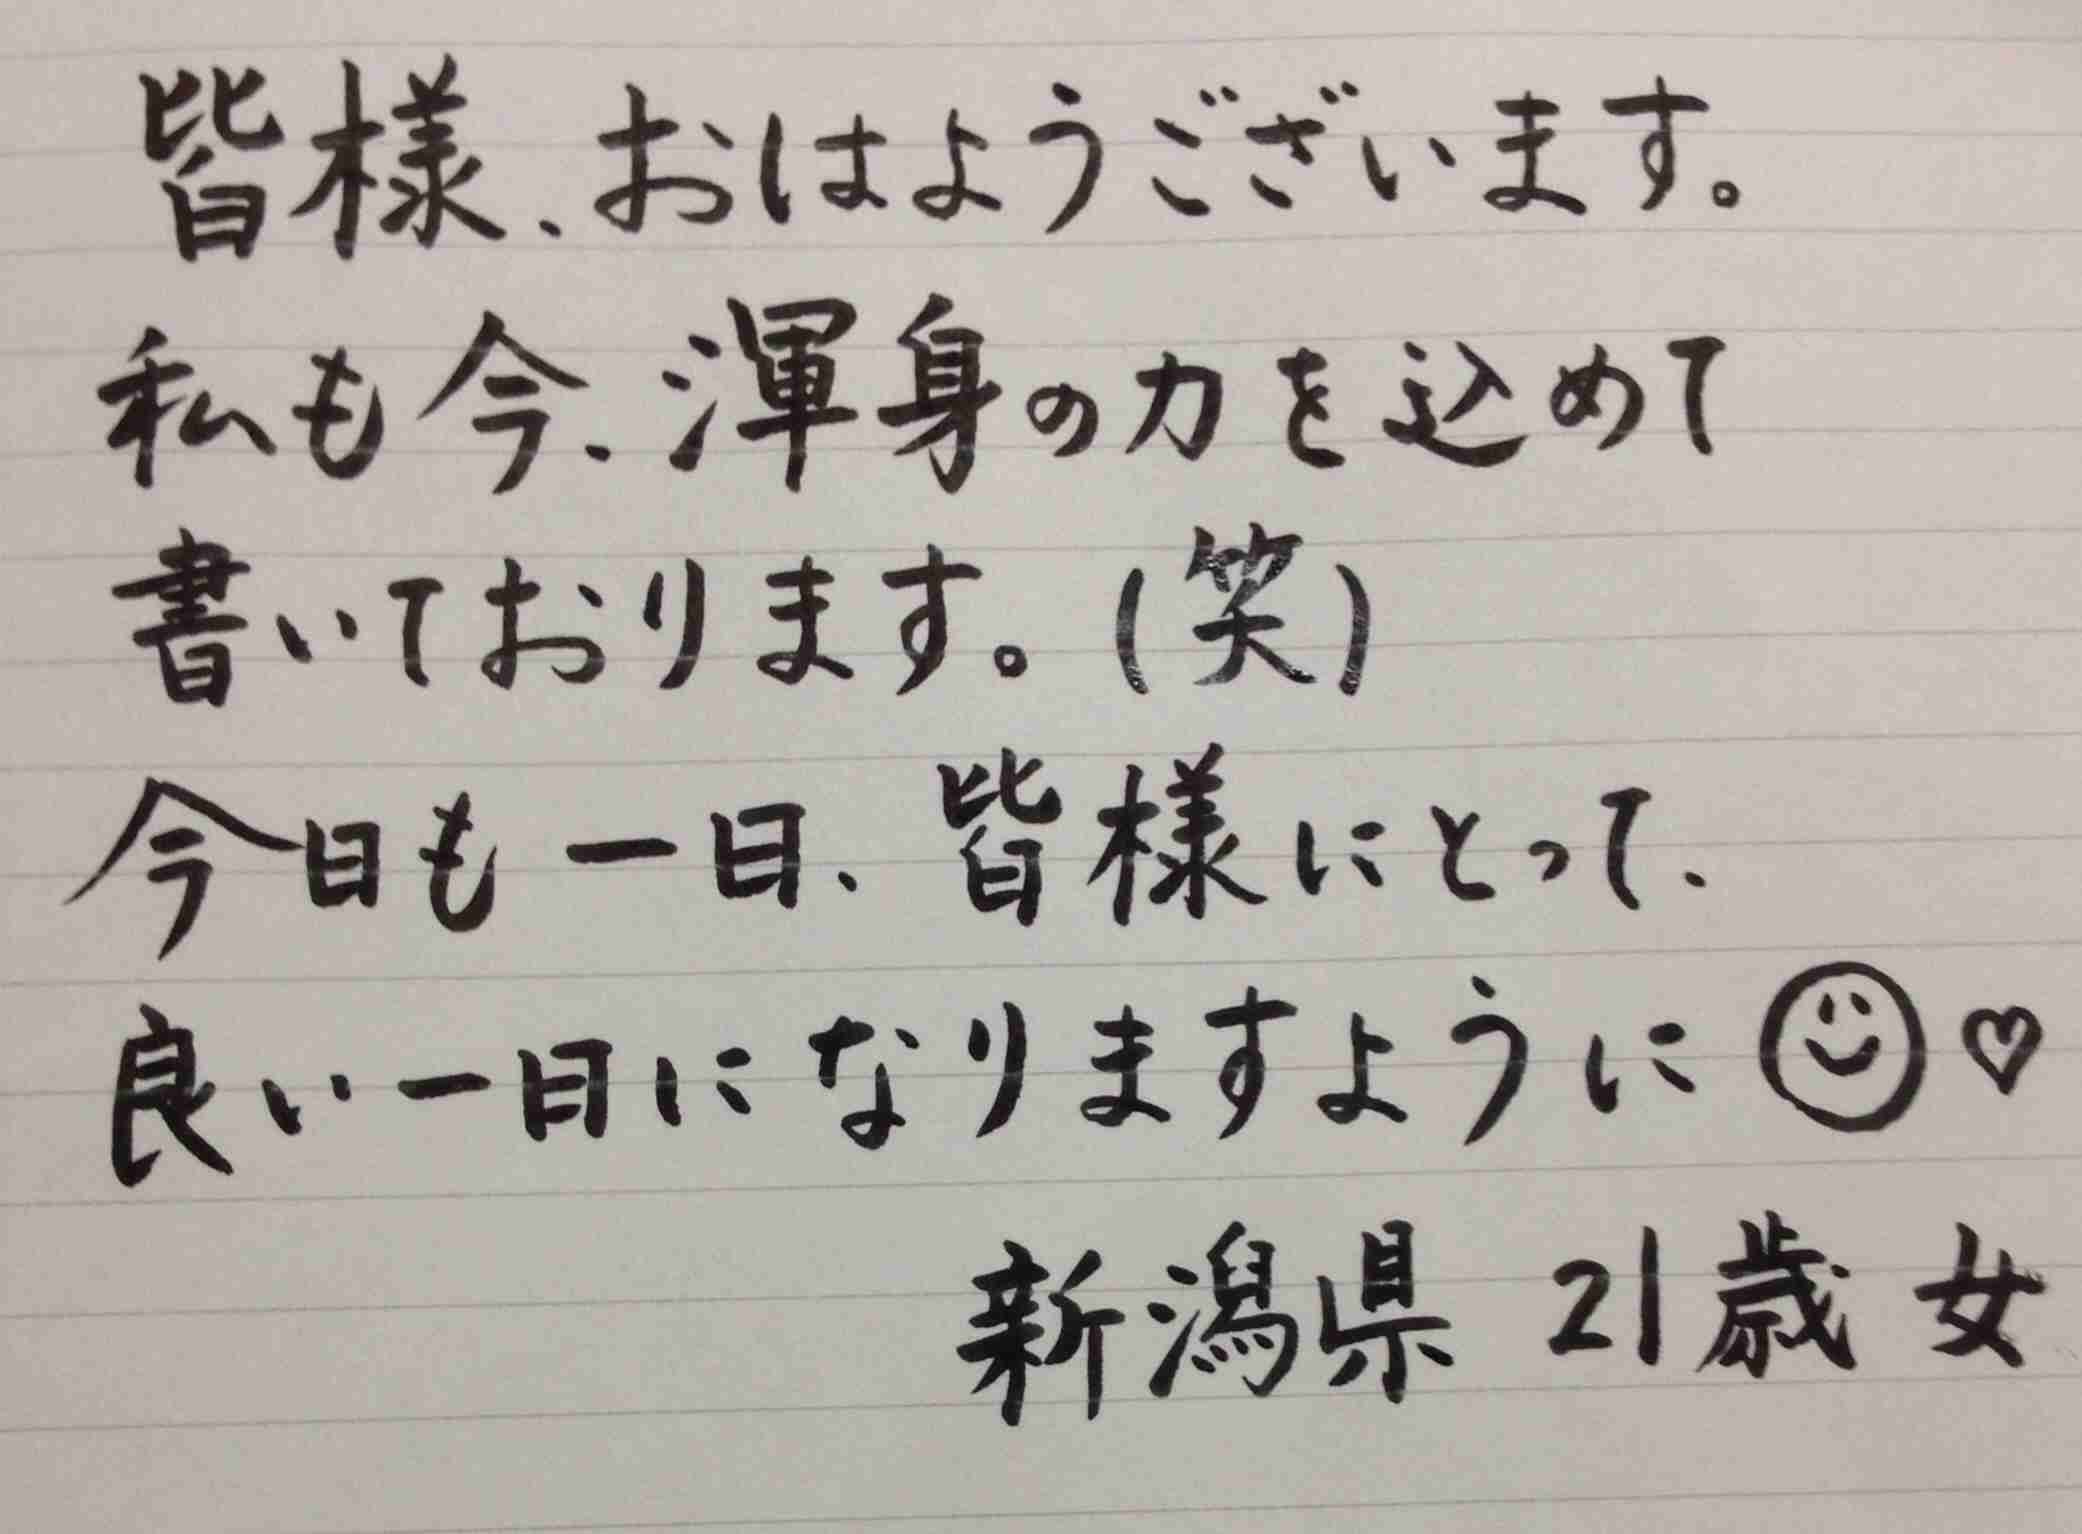 皆様、おはようございます。
私も今、渾身の力を込めて
書いております。(笑)
今日も一日、皆様にとって、
良い一日になりますように☺♡
新潟県 21歳 女